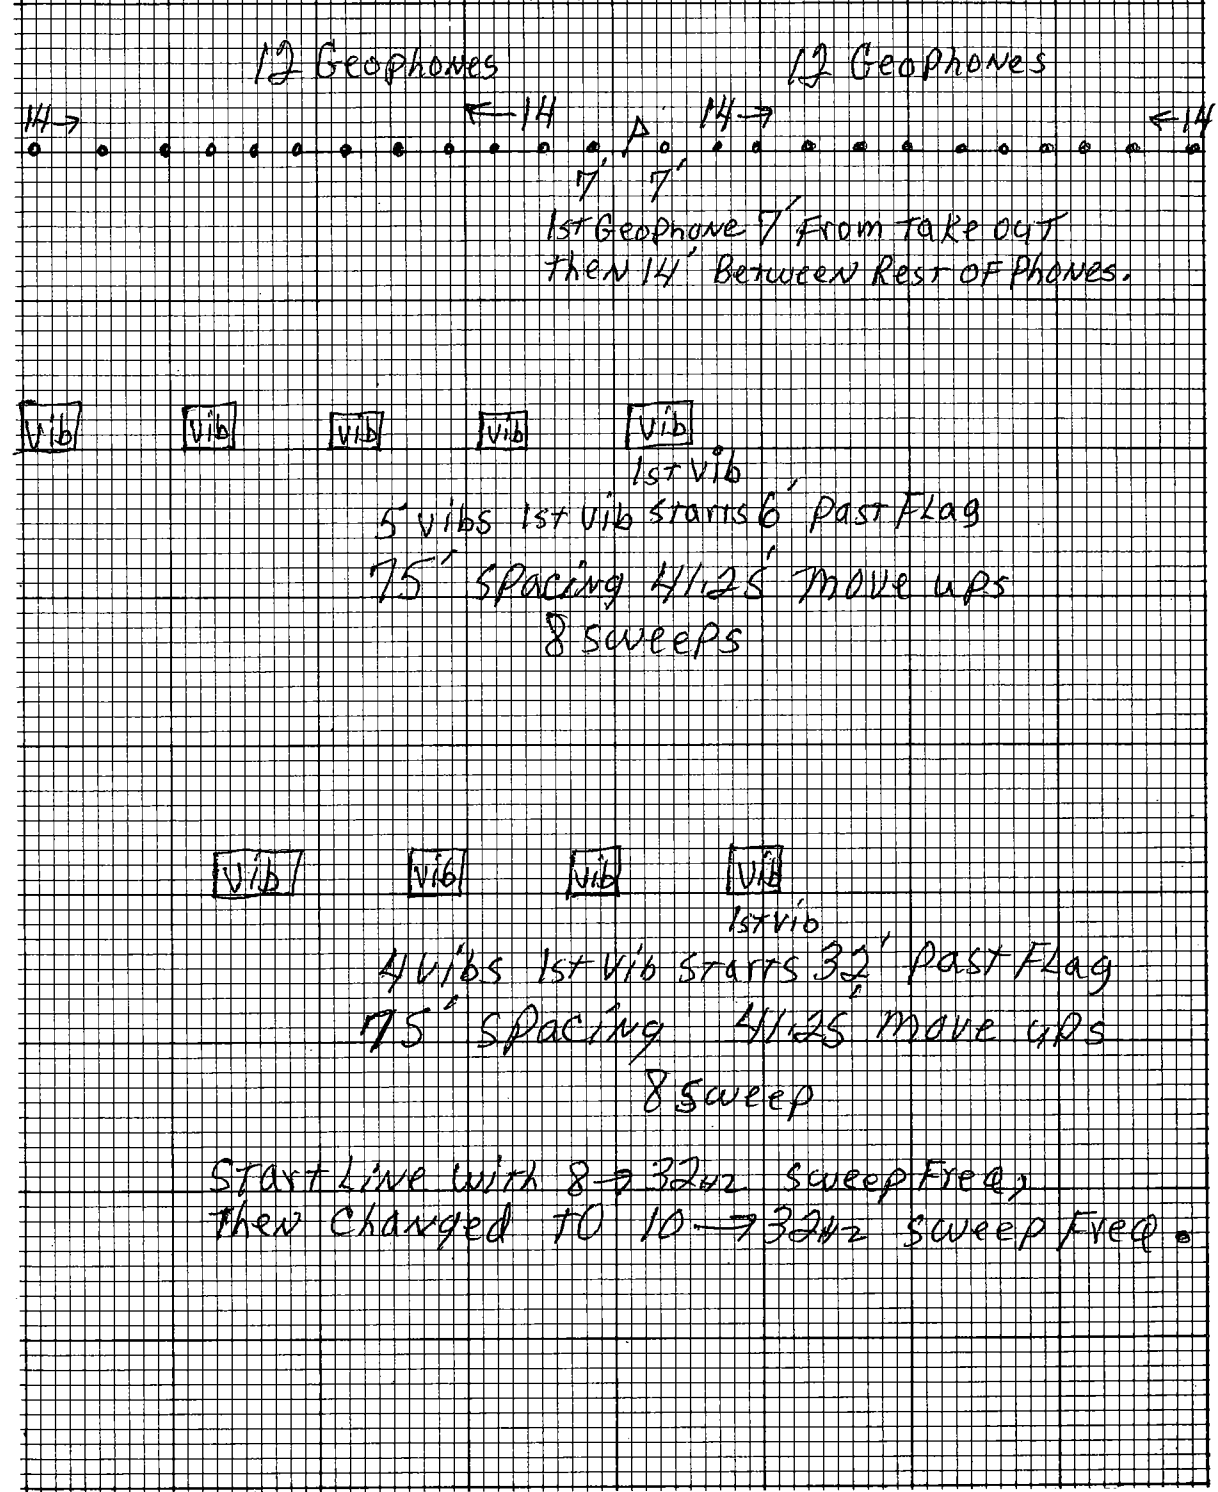 12 Geophones 12 Geophones
14→ ←14 14→ ←14
7' 7'
1st Geophone 7' From Take out
then 14' Between Rest of Phones.
Vib Vib Vib Vib Vib
1st Vib
5 vibs 1st vib starts 6' Past Flag
75' spacing 41.25' move ups
8 sweeps
Vib Vib Vib Vib
1st Vib
4 vibs 1st Vib starts 32' Past Flag
75' spacing 41.25' move ups
8 sweep
Start Line with 8→32Hz sweep Freq,
Then Changed to 10→32Hz sweep Freq.